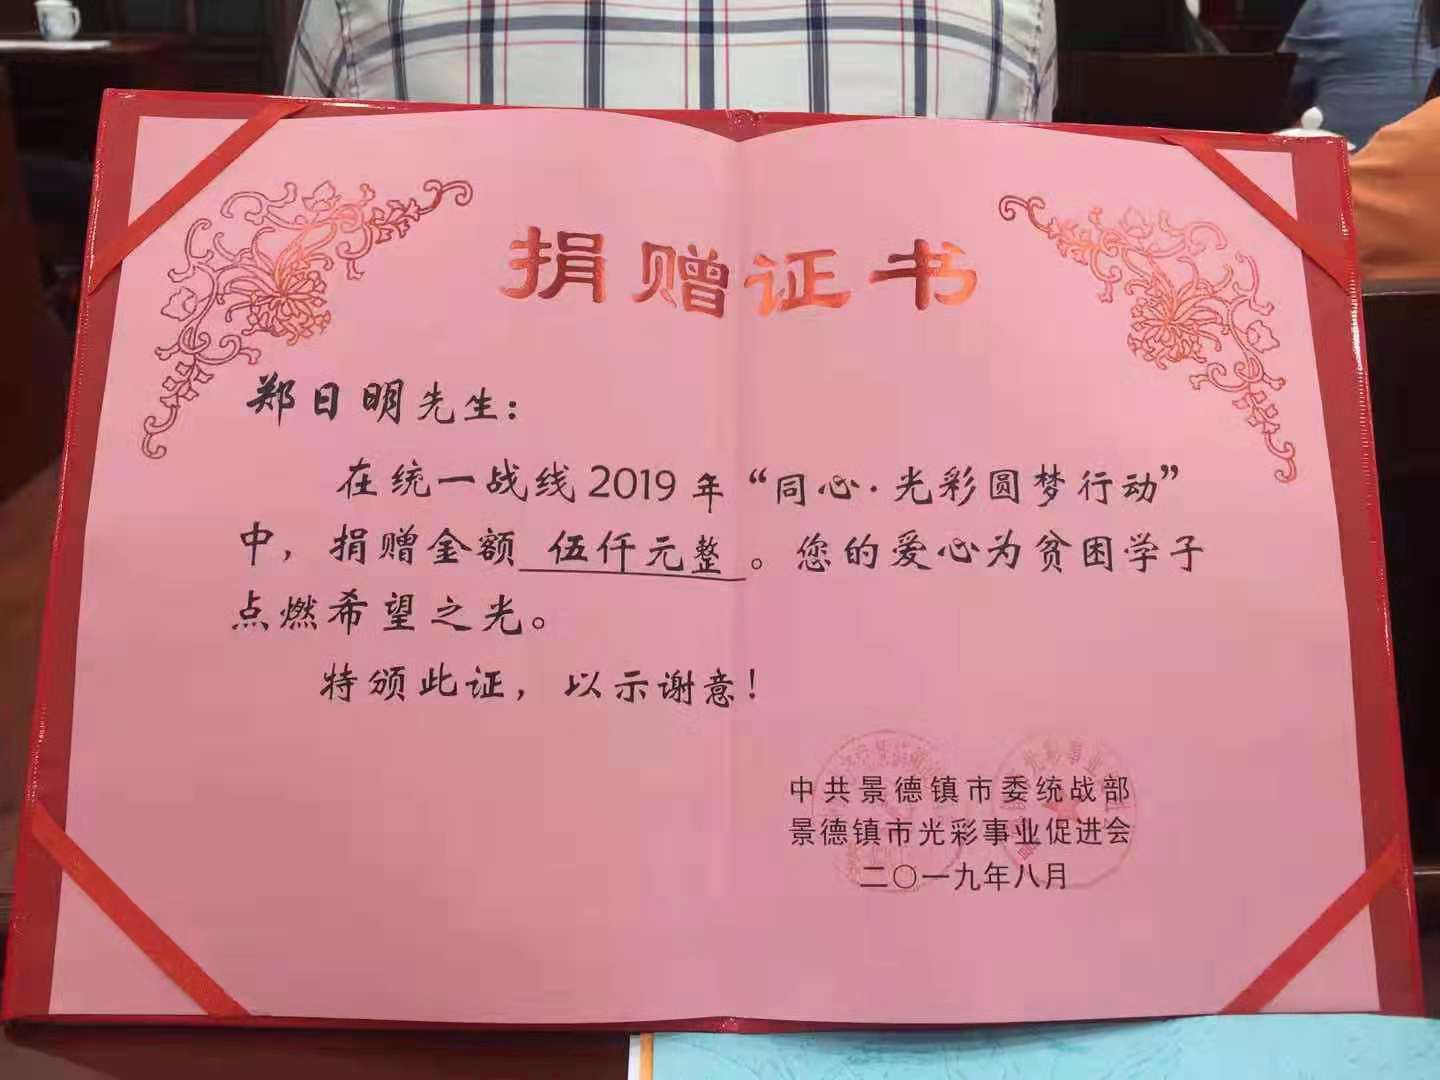 捐赠证书
郑日明先生：
在统一战线2019年“同心·光彩圆梦行动”
中，捐赠金额 伍仟元整 。您的爱心为贫困学子
点燃希望之光。
特颁此证，以示谢意！
中共景德镇市委统战部
景德镇市光彩事业促进会
二〇一九年八月